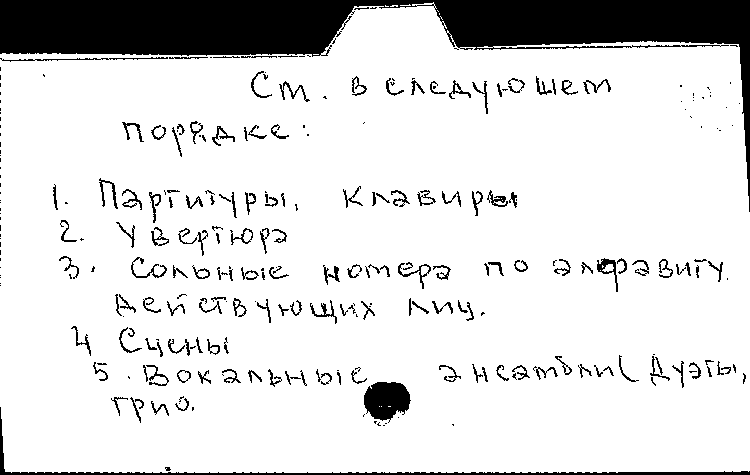 Ст. в следующем
порядке:
1. Партитуры, клавиры
2. Увертюра
3. Сольные номера по алфавиту
действующих лиц.
4 Сцены
5. Вокальные ансамбли (Дуэты,
трио.